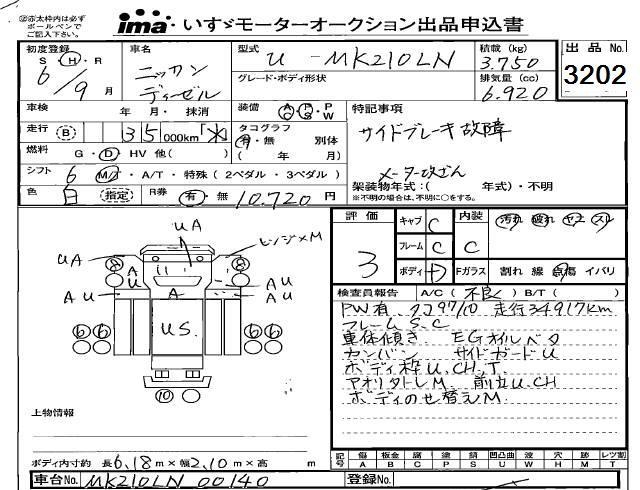 ㊟赤太枠内は必ず
ボールペンで
ご記入下さい。
ima いすゞモーターオークション出品申込書
初度登録
S・H・R
6/9月
車名
ニッサン
ディーゼル
型式
U-MK210LN
グレード・ボディ形状
積載(kg)
3.750
排気量(cc)
6.920
出品No.
3202
車検 年 月・抹消
装備 AC PS PW
特記事項
走行 B 35 000km「*」
タコグラフ
有・無 別体
( 年 月)
サイドブレーキ故障
燃料 G・D・HV 他( )
メーター改ざん
シフト 6 M/・A/T・特殊(2ペダル・3ペダル)
架装物年式:( 年式)・不明
※不明の場合は、不明に○をする。
色 白 指定 R券 有・無 10.720円
評価
3
キャブ C
フレーム C
ボディ D
内装 C
Fガラス
汚れ 破れ ヤニ スレ
割れ 線 点傷 イバリ
検査員報告 A/C(不良)B/T( )
PW有、タコ97/10 走行34917km
フレームS.C
車体傾き EGオイルベタ
カンバン サイドガードU
ボディ枠U.CH.T.
アオリタトレM. 前立U.CH
ボディのせ替えM.
UA
UA
ヒンジ×M
8
8
A
A
AU
A
AU
6
6
US.
6
6
10
上物情報
ボディ内寸 約 長6.18m×幅2.10m×高 m
記号
傷 A
板金 B
腐 C
塗 P
錆 S
凹凸曲 U
波 W
穴 H
跡 M
レツ割 T
車台No. MK210LN 00140
登録No.